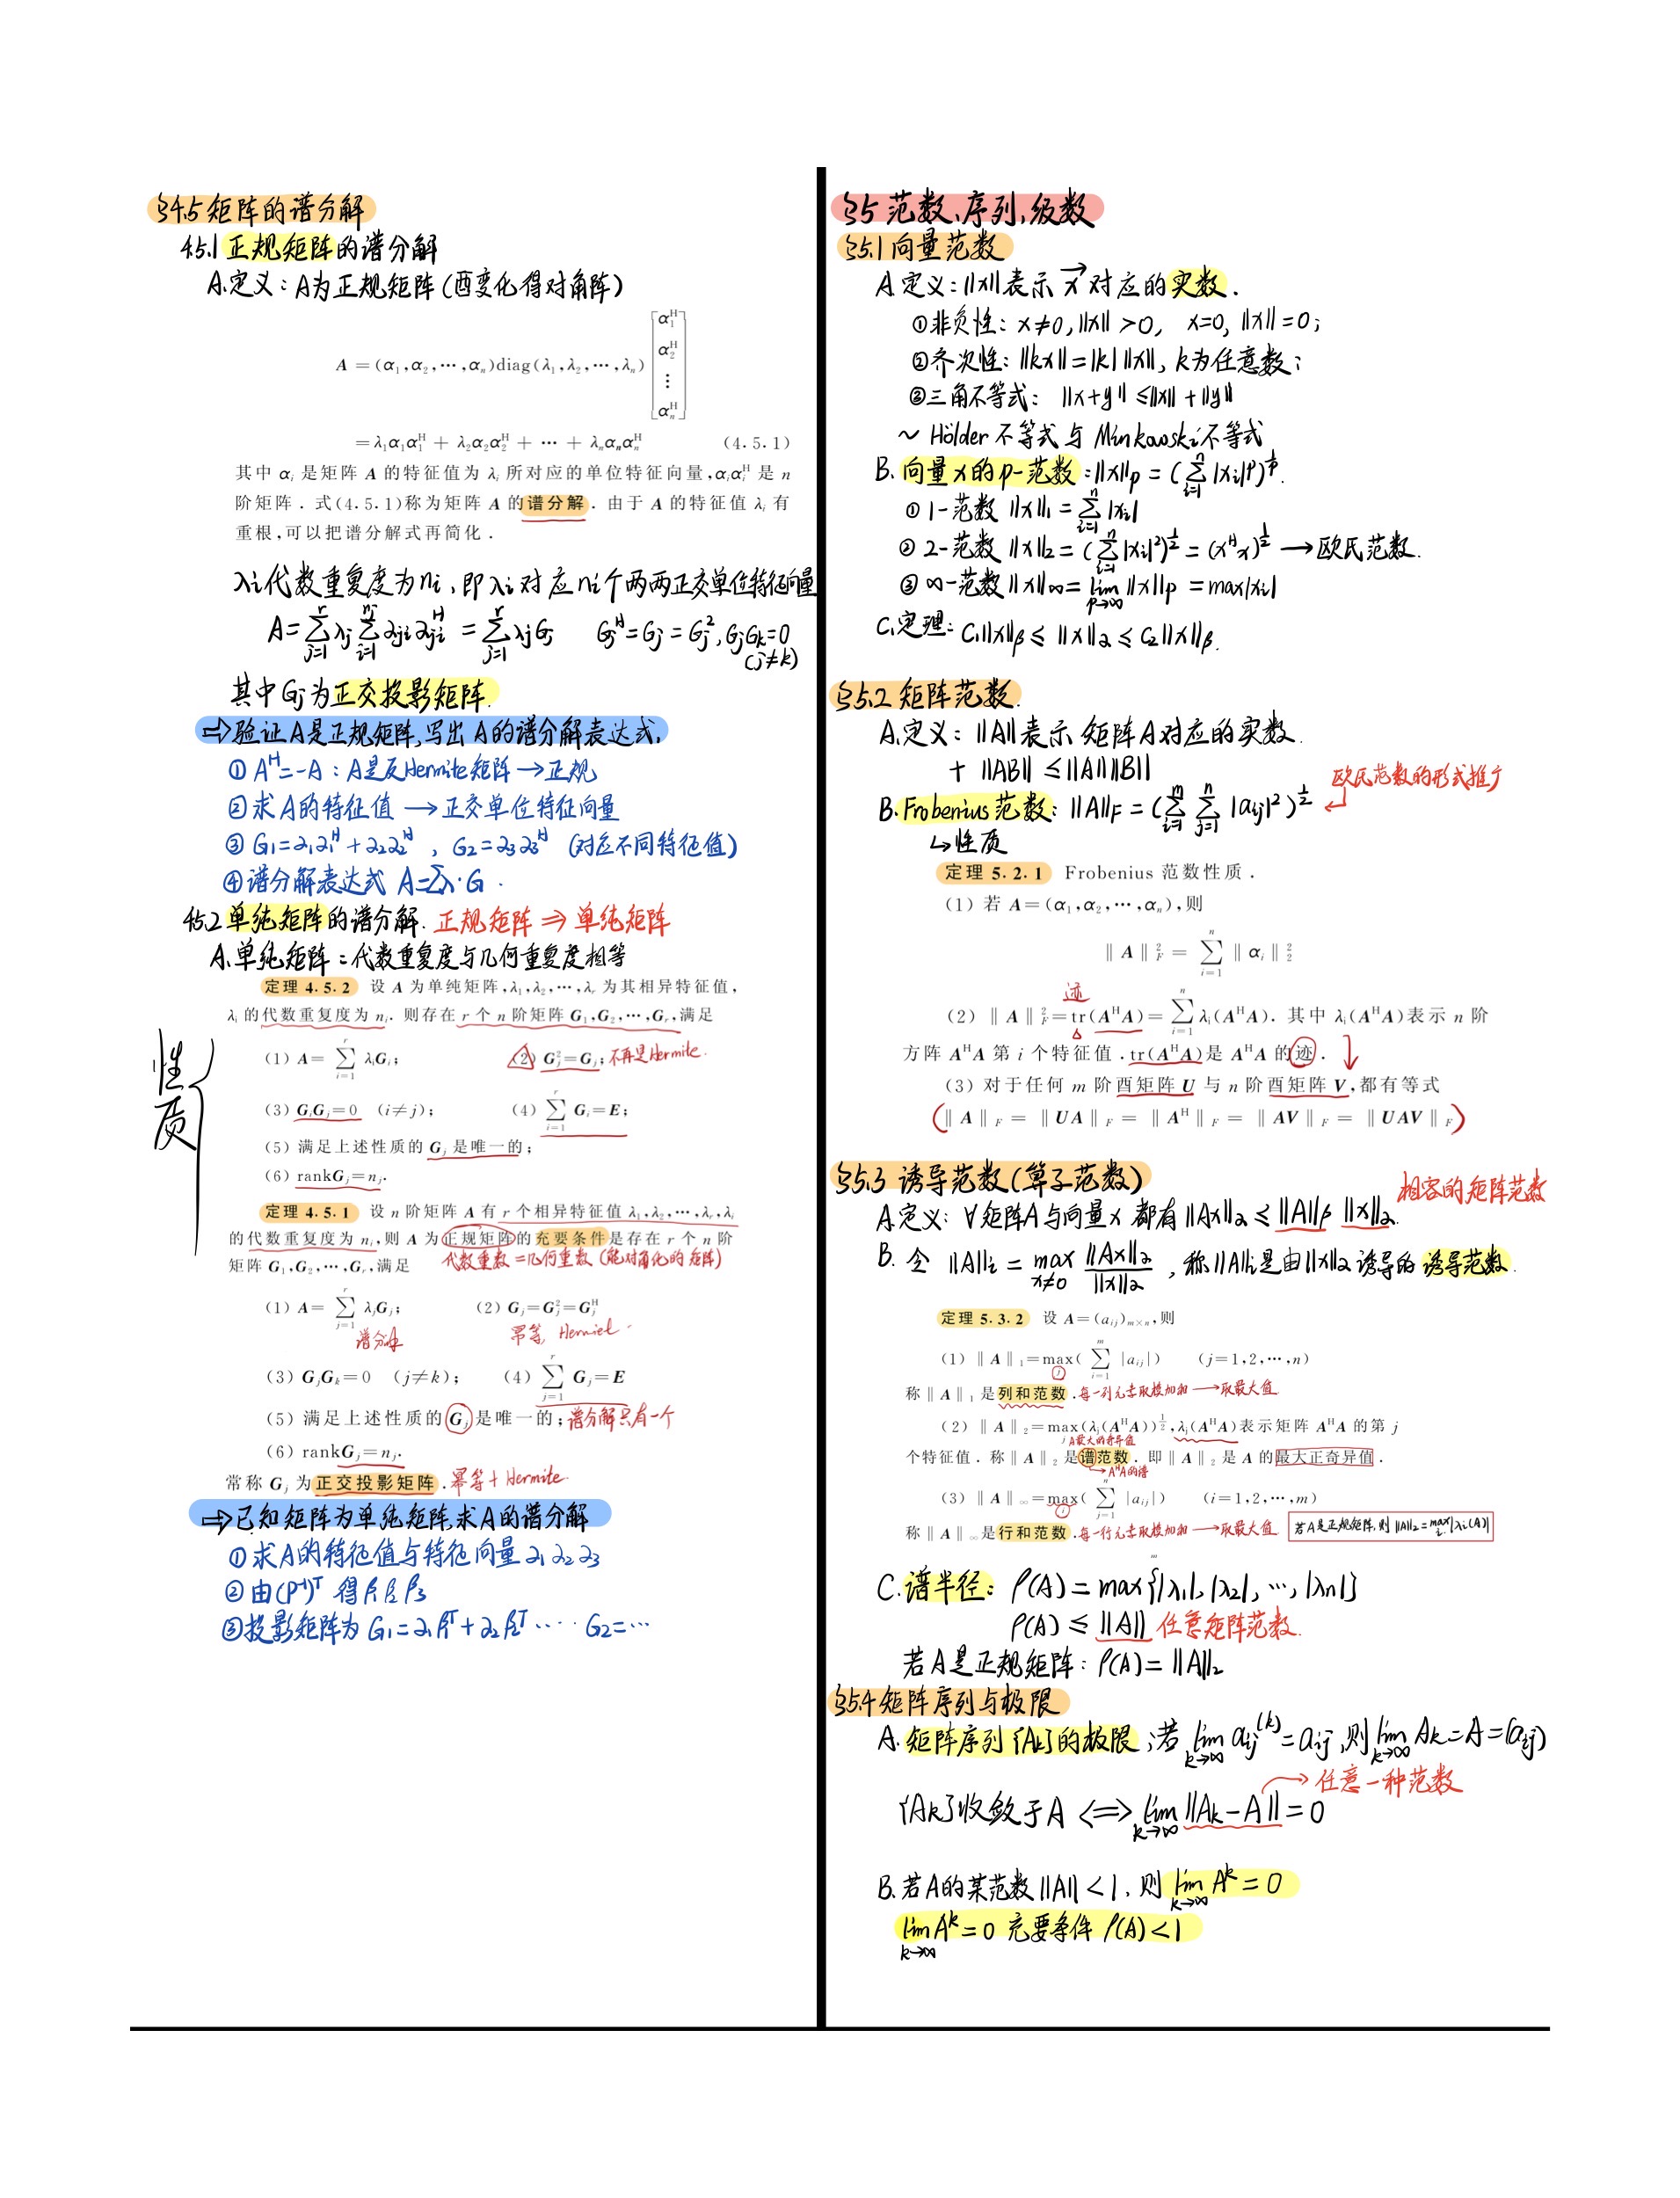 §4.5 矩阵的谱分解
4.5.1 正规矩阵的谱分解
A.定义：A为正规矩阵(酉变化得对角阵)
A = (α₁,α₂,⋯,αₙ)diag(λ₁,λ₂,⋯,λₙ) [α₁ᴴ α₂ᴴ ⋮ αₙᴴ]
= λ₁α₁α₁ᴴ + λ₂α₂α₂ᴴ + ⋯ + λₙαₙαₙᴴ (4.5.1)
其中 αᵢ 是矩阵 A 的特征值为 λᵢ 所对应的单位特征向量,αᵢαᵢᴴ 是 n
阶矩阵. 式(4.5.1)称为矩阵 A 的谱分解. 由于 A 的特征值 λᵢ 有
重根,可以把谱分解式再简化.
λi代数重复度为ni,即λi对应ni个两两正交单位特征向量
A=∑_{j=1}^{r} λj ∑_{i=1}^{nj} αji αji^H = ∑_{j=1}^{r} λjGj Gj^H=Gj=Gj²,GjGk=0
(j≠k)
其中Gj为正交投影矩阵.
⇒验证A是正规矩阵,写出A的谱分解表达式,
① A^H=-A：A是反Hermite矩阵→正规
②求A的特征值 → 正交单位特征向量
③ G1=α1α1^H+α2α2^H , G2=α3α3^H (对应不同特征值)
④谱分解表达式 A=∑λ·G.
4.5.2 单纯矩阵的谱分解. 正规矩阵 ⇒ 单纯矩阵
A.单纯矩阵：代数重复度与几何重复度相等
定理 4.5.2 设 A 为单纯矩阵,λ₁,λ₂,⋯,λᵣ 为其相异特征值,
λᵢ 的代数重复度为 nᵢ. 则存在 r 个 n 阶矩阵 G₁,G₂,⋯,Gᵣ,满足
性质
(1) A= ∑_{i=1}^{r} λᵢGᵢ; (2) Gⱼ²=Gⱼ; 不再是Hermite.
(3) GᵢGⱼ=0 (i≠j); (4) ∑_{i=1}^{r} Gᵢ=E;
(5) 满足上述性质的 Gⱼ 是唯一的;
(6) rankGⱼ=nⱼ.
定理 4.5.1 设 n 阶矩阵 A 有 r 个相异特征值 λ₁,λ₂,⋯,λᵣ,λᵢ
的代数重复度为 nᵢ,则 A 为正规矩阵的充要条件是存在 r 个 n 阶
矩阵 G₁,G₂,⋯,Gᵣ,满足 代数重数=几何重数 (能对角化的矩阵)
(1) A= ∑_{j=1}^{r} λⱼGⱼ; (2) Gⱼ=Gⱼ²=Gⱼᴴ
谱分解 幂等,
(3) GⱼGₖ=0 (j≠k); (4) ∑_{j=1}^{r} Gⱼ=E
(5) 满足上述性质的 Gⱼ 是唯一的; 谱分解只有一个
(6) rankGⱼ=nⱼ.
常称 Gⱼ 为正交投影矩阵. 幂等+Hermite.
⇒已知矩阵为单纯矩阵,求A的谱分解
①求A的特征值与特征向量α1 α2 α3
②由(P⁻¹)^T 得β1 β2 β3
③投影矩阵为 G1=α1β1^T+α2β2^T⋯⋯ G2=⋯
§5 范数、序列、级数
§5.1 向量范数
A.定义：||x||表示 x⃗ 对应的实数.
①非负性：x≠0,||x||>0, x=0,||x||=0;
②齐次性：||kx||=|k| ||x||,k为任意数;
③三角不等式： ||x+y||≤||x||+||y||
~ Hölder 不等式与 Minkowski不等式
B.向量x的p-范数：||x||p = (∑_{i=1}^{n} |xi|^p)^{1/p}.
① 1-范数 ||x||₁=∑_{i=1}^{n} |xi|
② 2-范数 ||x||₂=(∑_{i=1}^{n} |xi|²)^{1/2}=(x^H x)^{1/2} → 欧氏范数.
③ ∞-范数||x||∞=lim_{p→∞} ||x||p = max|xi|
C.定理：C₁||x||β ≤ ||x||α ≤ C₂||x||β.
§5.2 矩阵范数.
A.定义：||A||表示矩阵A对应的实数.
+ ||AB||≤||A||||B||
B.Frobenius范数：||A||F = (∑_{i=1}^{m} ∑_{j=1}^{n} |aij|²)^{1/2} 欧氏范数的形式推广
↳性质
定理 5.2.1 Frobenius 范数性质.
(1) 若 A=(α₁,α₂,⋯,αₙ),则
‖A‖²_F = ∑_{i=1}^{n} ‖αᵢ‖²₂
迹
(2) ‖A‖²_F=tr(AᴴA)= ∑_{i=1}^{n} λᵢ(AᴴA). 其中 λᵢ(AᴴA)表示 n 阶
方阵 AᴴA 第 i 个特征值. tr(AᴴA)是 AᴴA 的迹.
(3) 对于任何 m 阶酉矩阵 U 与 n 阶酉矩阵 V,都有等式
‖A‖_F = ‖UA‖_F = ‖Aᴴ‖_F = ‖AV‖_F = ‖UAV‖_F
§5.3 诱导范数(算子范数)
相容的矩阵范数
A.定义：∀矩阵A与向量x 都有||Ax||α≤||A||β ||x||α.
B. 令 ||A||i = max_{x≠0} ||Ax||α/||x||α ,称||A||i是由||x||α诱导的诱导范数.
定理 5.3.2 设 A=(aᵢⱼ)ₘ×ₙ,则
(1) ‖A‖₁=max_j( ∑_{i=1}^{m} |aᵢⱼ|) (j=1,2,⋯,n)
称‖A‖₁是列和范数. 每一列元素取模加和→取最大值
(2) ‖A‖₂=max_j(λⱼ(AᴴA))^{1/2},λⱼ(AᴴA)表示矩阵 AᴴA 的第 j
A最大的奇异值
个特征值. 称‖A‖₂是谱范数. 即‖A‖₂是 A 的最大正奇异值.
→A^HA的谱
(3) ‖A‖∞=max_i( ∑_{j=1}^{n} |aᵢⱼ|) (i=1,2,⋯,m)
称‖A‖∞是行和范数. 每一行元素取模加和→取最大值 若A是正规矩阵,则||A||₂=max_i|λi(A)|
m
C.谱半径：ρ(A)=max{|λ1|,|λ2|,⋯,|λn|}
ρ(A)≤||A|| 任意矩阵范数.
若A是正规矩阵：ρ(A)=||A||₂
§5.4 矩阵序列与极限
A.矩阵序列{Ak}的极限;若 lim_{k→∞} aij^(k)=aij,则 lim_{k→∞} Ak=A=(aij)
→任意一种范数
{Ak}收敛于A ⟺ lim_{k→∞} ||Ak-A||=0
B.若A的某范数||A||<1,则 lim_{k→∞} A^k=0
lim_{k→∞} A^k=0 充要条件 ρ(A)<1